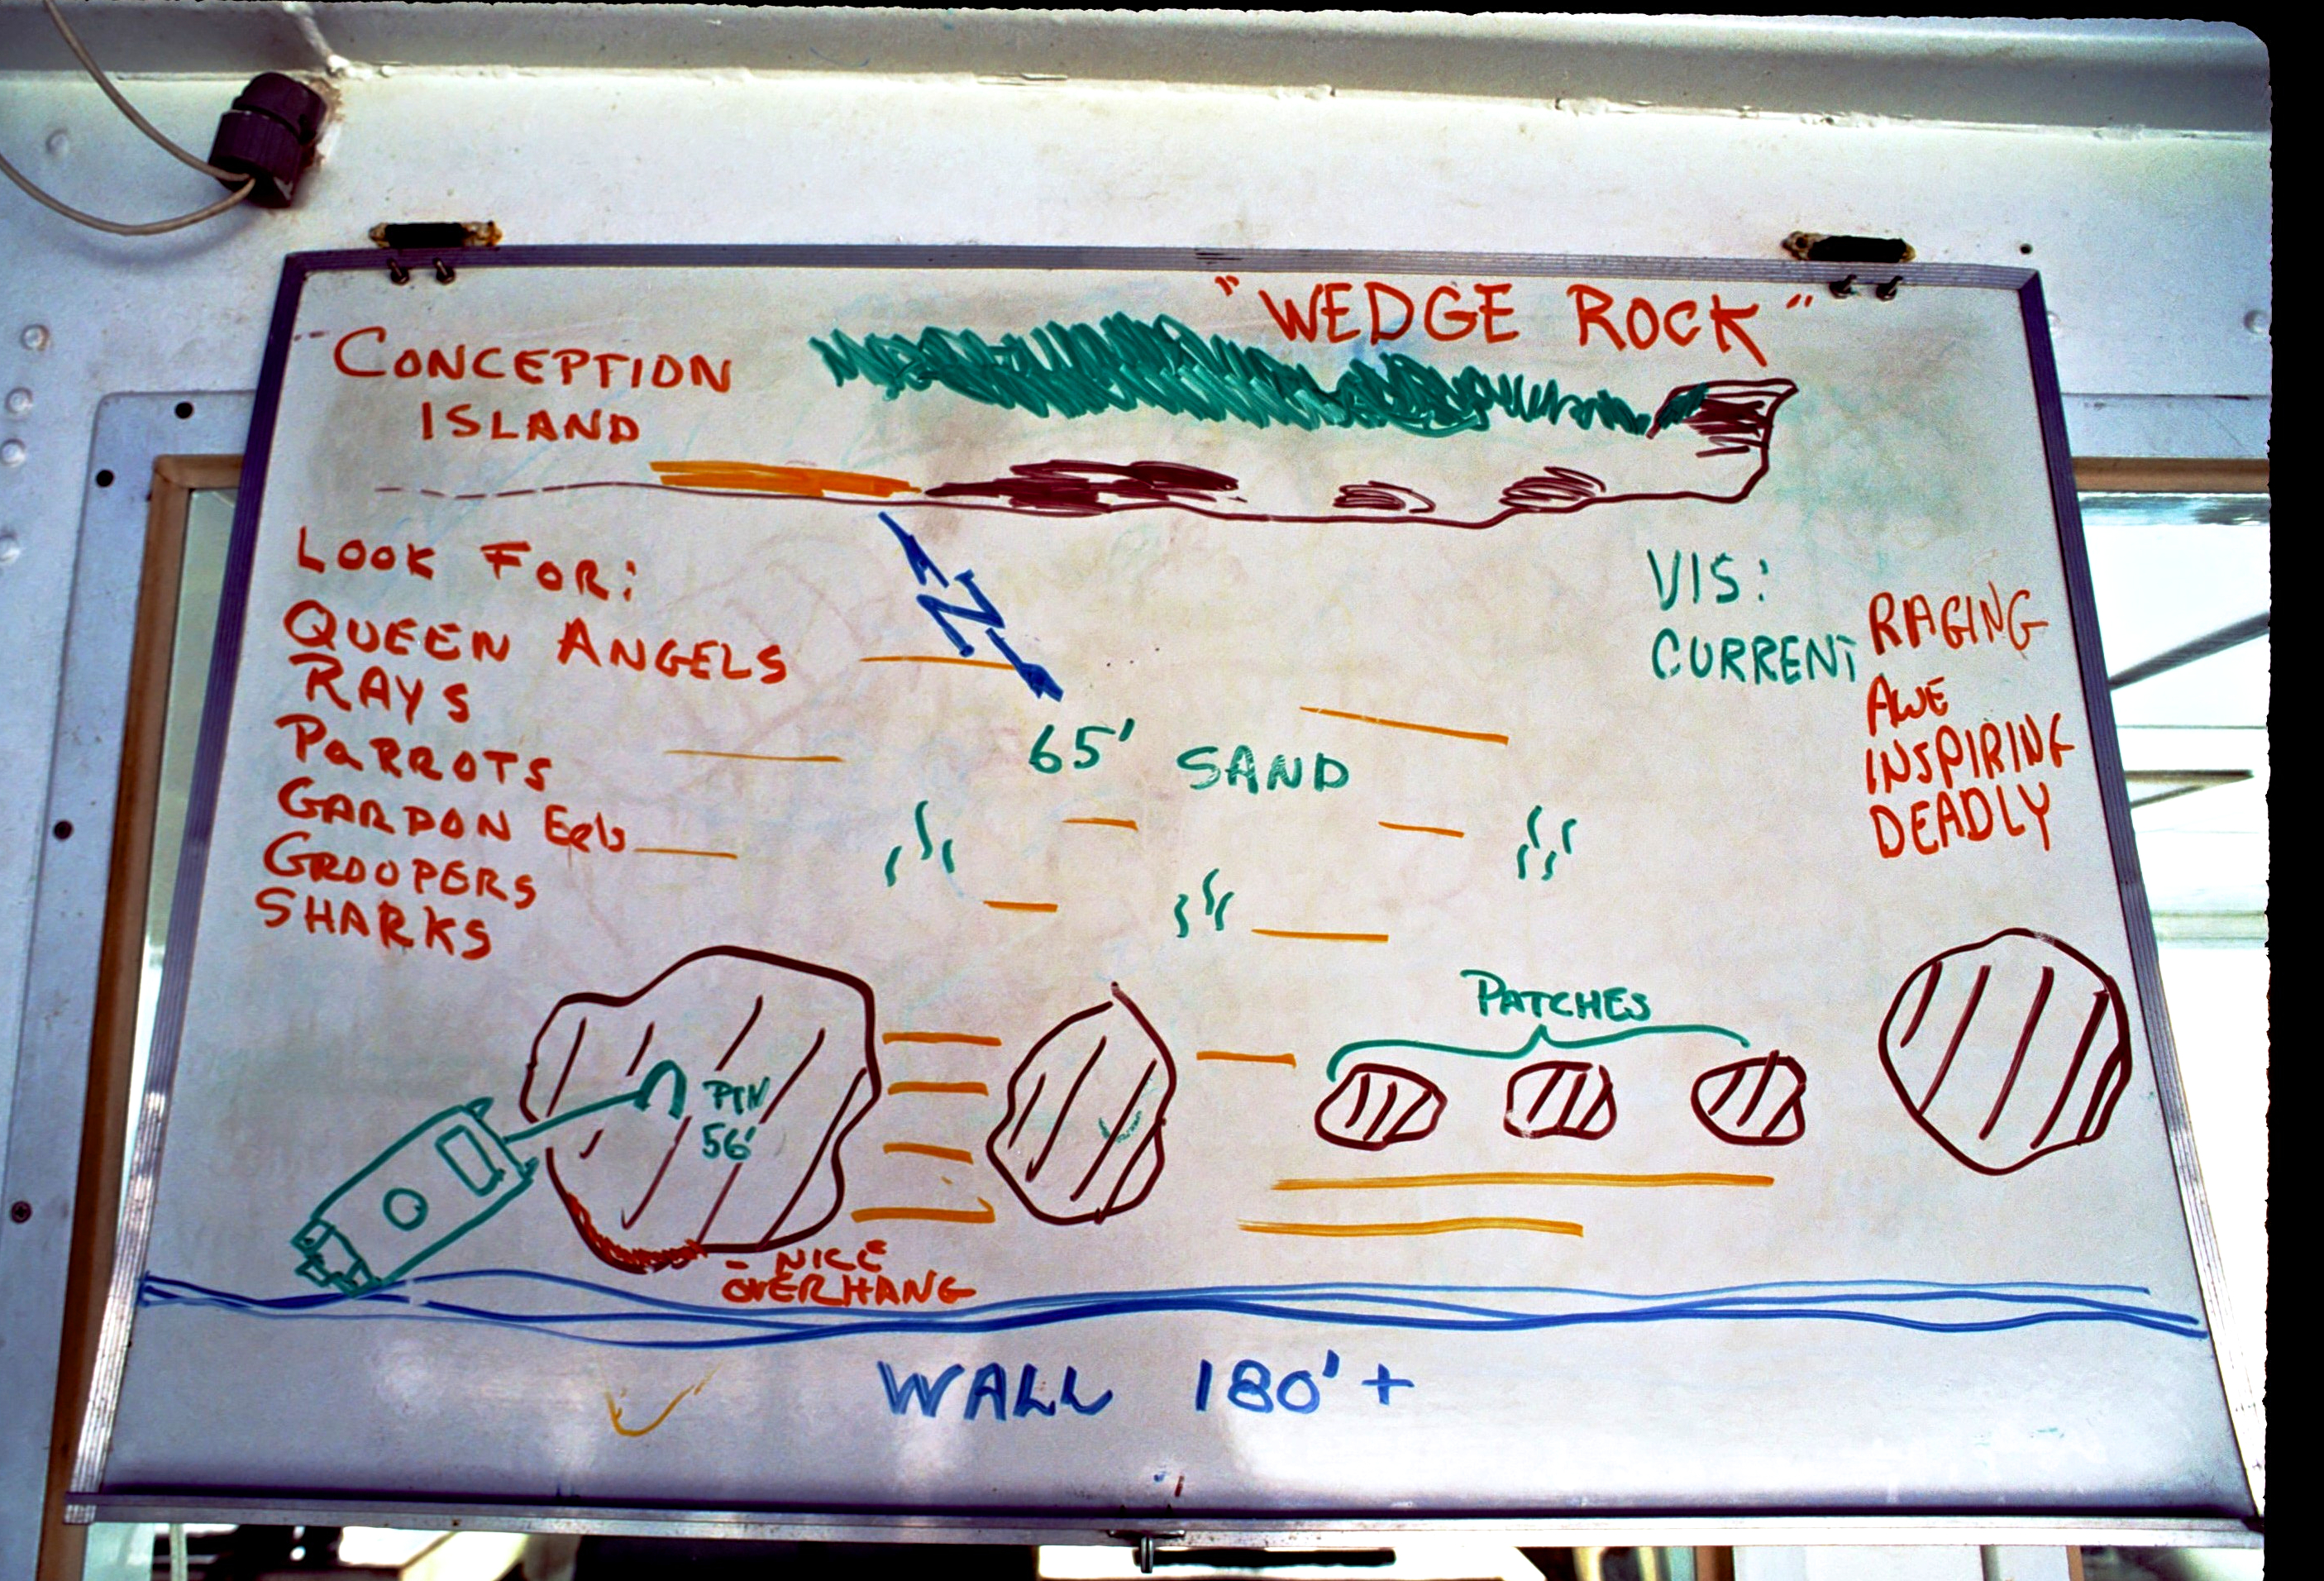 "WEDGE ROCK"
CONCEPTION
ISLAND
LOOK FOR:
QUEEN ANGELS
RAYS
PARROTS
GARDON Eels
GROOPERS
SHARKS
N
VIS:
CURRENT
RAGING
AWE
INSPIRING
DEADLY
65' SAND
PATCHES
PIN
56'
- NICE
OVERHANG
WALL 180'+